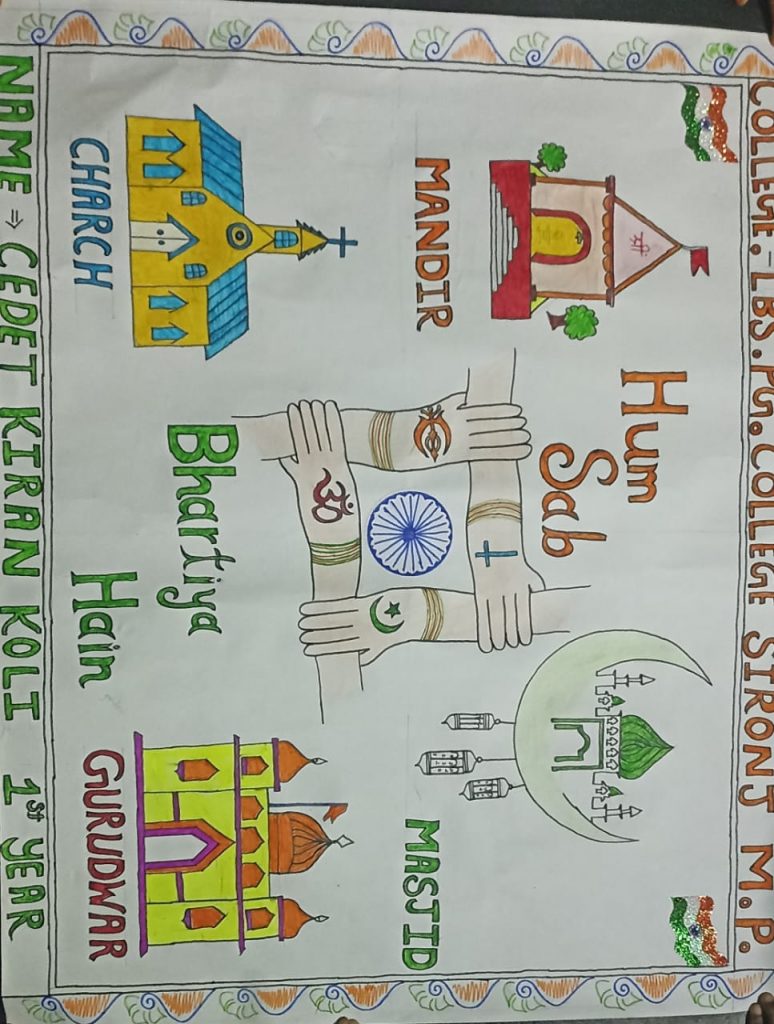 COLLEGE.-LBS.PG.COLLEGE SIRONJ M.P.
Hum
Sab
MANDIR
MASJID
ॐ
Bhartiya
Hain
CHARCH
GURUDWAR
NAME ⇒ CEDET KIRAN KOLI 1st YEAR